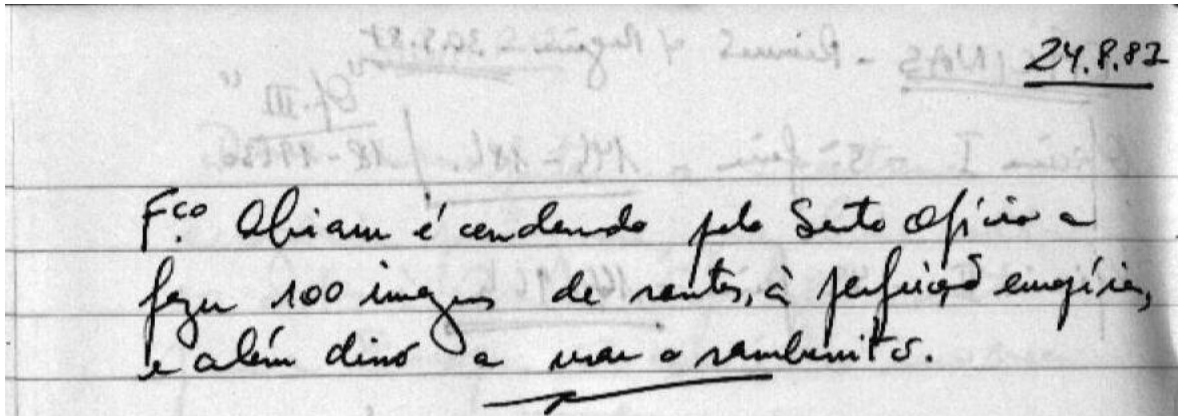 24.8.82
F.co Abiam é condenado pelo Santo Ofício a
fazer 100 imagens de santos, à perfeição
e além disso a usar o sambenito.